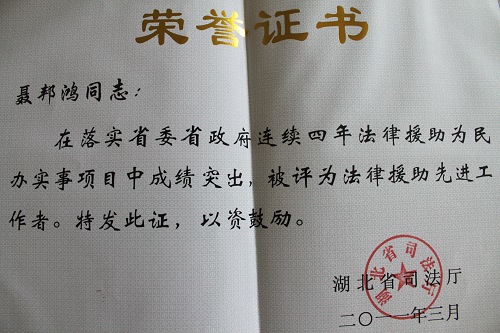 荣誉证书
聂邦鸿同志：
在落实省委省政府连续四年法律援助为民
办实事项目中成绩突出，被评为法律援助先进工
作者。特发此证，以资鼓励。
湖北省司法厅
湖北省司法厅
二〇一一年三月